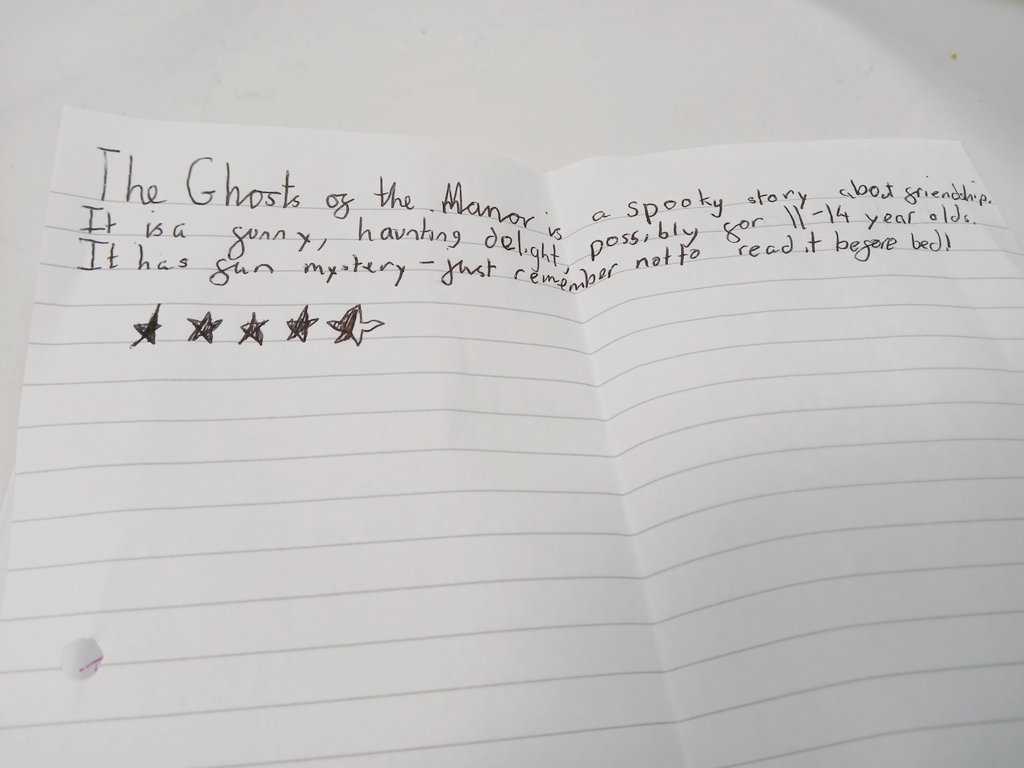 The Ghosts of the Manor is a spooky story about friendship.
It is a funny, haunting delight, possibly for 11-14 year olds.
It has fun mystery - just remember not to read it before bed!